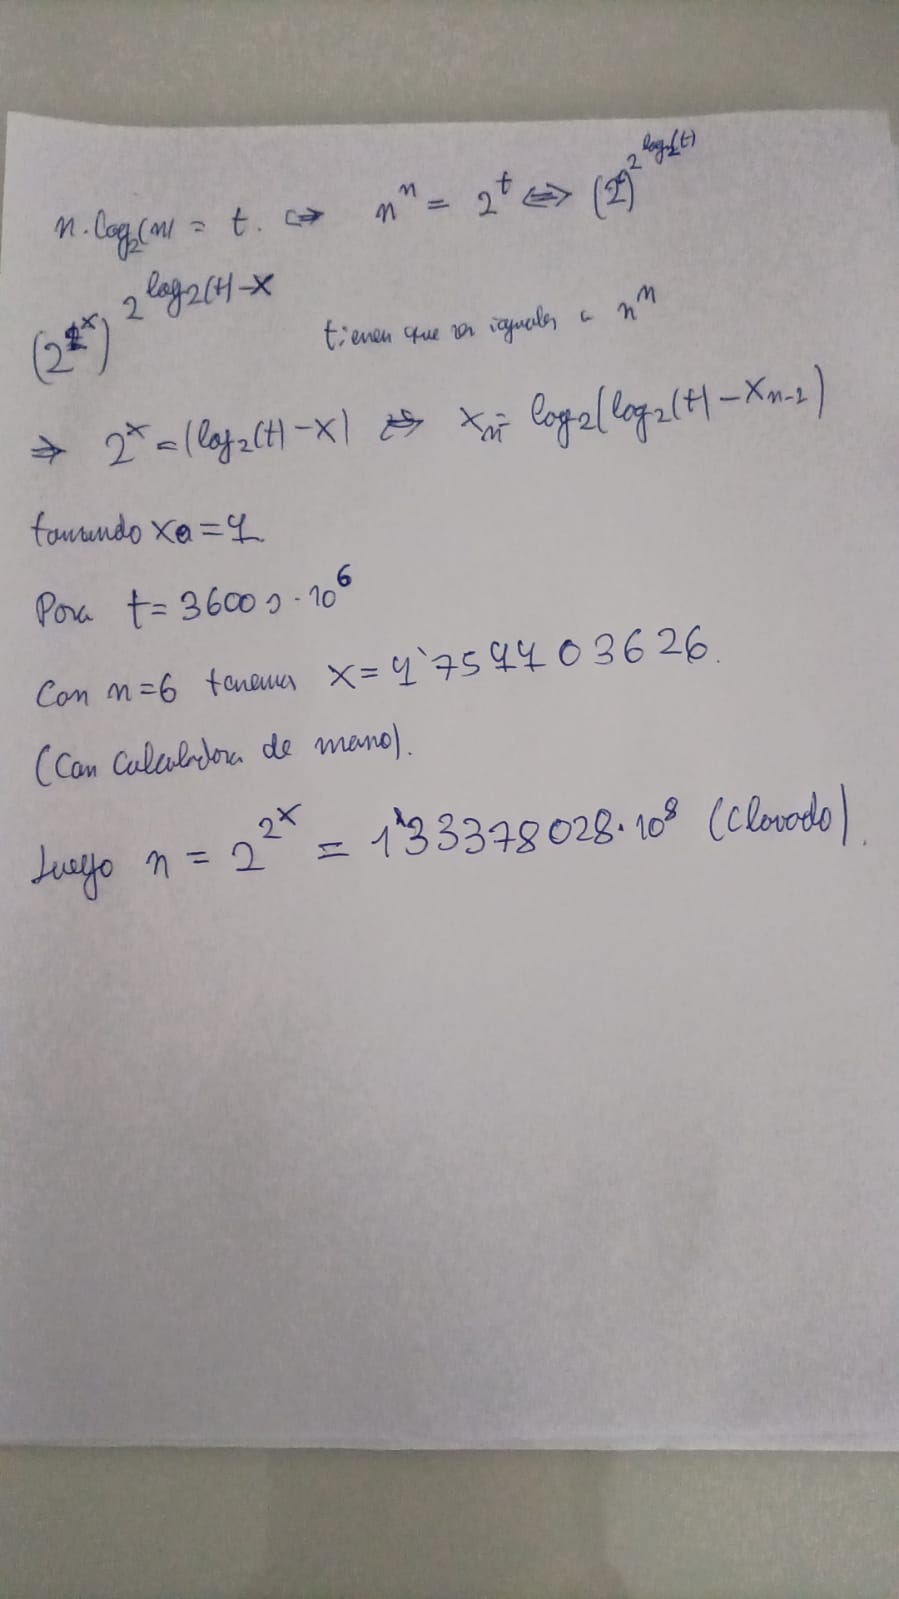 n·log₂(n) = t. ⇔ nⁿ = 2ᵗ ⇔ (2)^2^log₂(t)
(2^2^x)^2^log₂(t)-x tienen que ser iguales a nⁿ
⇒ 2ˣ = (log₂(t)-x) ⇔ xₙ = log₂(log₂(t)-xₙ₋₁)
tomando x₀=1
Para t= 3600 · 10⁶
Con n=6 tenemos x= 4'754403626.
(Con calculadora de mano).
Luego n = 2^2^x = 1'33378028·10⁸ (Clavado).